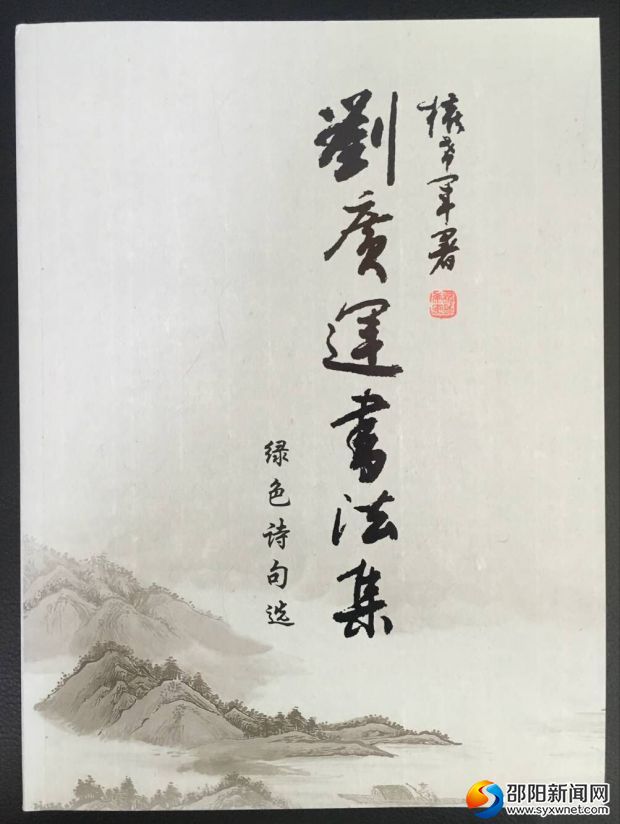 權希軍署
劉廣運書法集
绿色诗句选
邵阳新闻网
www.syxwnet.com